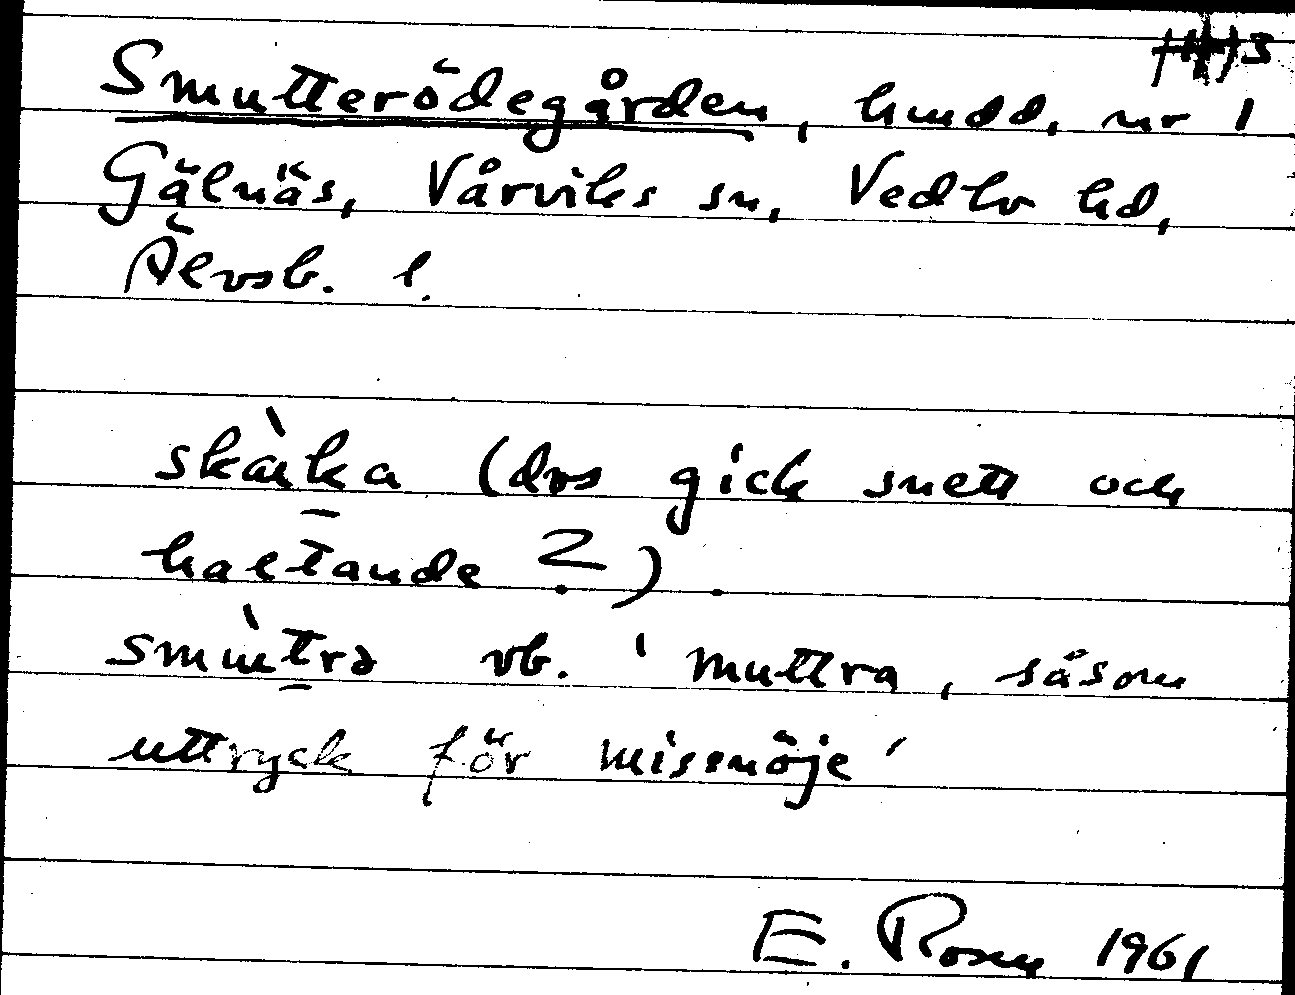 Smutterödegården, hmdd, nr 1
Gälnäs, Vårviks sn, Vedbo hd,
Älvsb. l.
skàka (dvs gick snett och
haltande ?).
smùtrə vb. 'muttra, såsom
uttryck för missnöje'
E. Rosen 1961